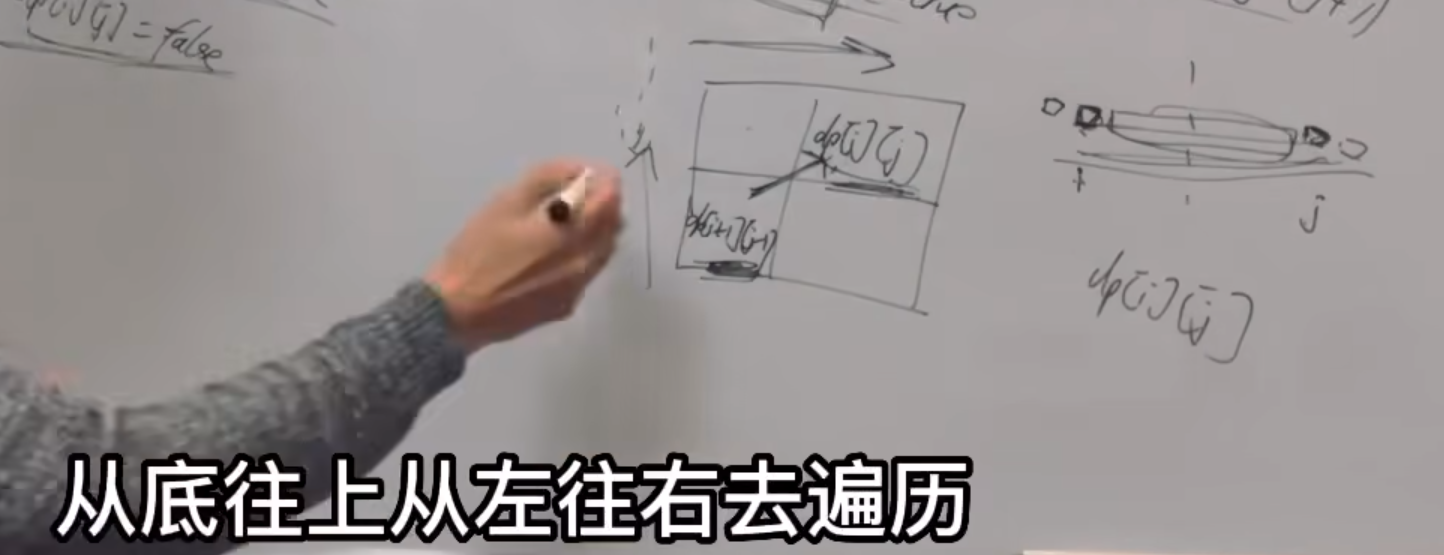 dp[i][j] = false
dp[i][j]
dp[i+1][j-1]
i
j
dp[i][j]
从底往上从左往右去遍历